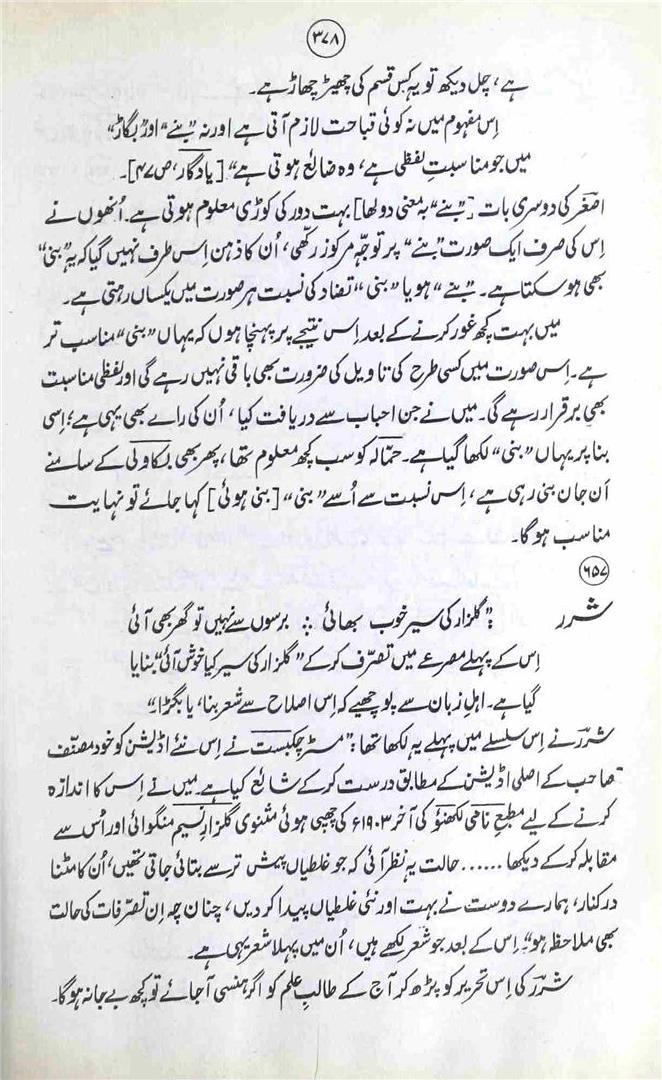 ۳۷۸
ہے، چل دیکھ تو یہ کس قسم کی چھیڑ چھاڑ ہے۔
اِس مفہوم میں نہ کوئی قباحت لازم آتی ہے اور نہ ”بنے“ اور ”بگاڑ“
میں جو مناسبتِ لفظی ہے، وہ ضائع ہوتی ہے“ [یادگار، ص ۴۷]۔
اصغر کی دوسری بات [”بنے“ بہ معنی دولھا] بہت دور کی کوڑی معلوم ہوتی ہے۔ اُنھوں نے
اِس کی صرف ایک صورت ”بنے“ پر توجّہ مرکوز رکھی، اُن کا ذہن اِس طرف نہیں گیا کہ یہ ”بنی“
بھی ہو سکتا ہے۔ ”بنے“ ہو یا ”بنی“ تضاد کی نسبت ہر صورت میں یکساں رہتی ہے۔
میں بہت کچھ غور کرنے کے بعد اِس نتیجے پر پہنچا ہوں کہ یہاں ”بنی“ مناسب تر
ہے۔ اِس صورت میں کسی طرح کی تاویل کی ضرورت بھی باقی نہیں رہے گی اور لفظی مناسبت
بھی برقرار رہے گی۔ میں نے جن احباب سے دریافت کیا، اُن کی راے بھی یہی ہے؛ اِسی
بنا پر یہاں ”بنی“ لکھا گیا ہے۔ حمّالہ کو سب کچھ معلوم تھا، پھر بھی بکاولی کے سامنے
اَن جان بنی رہی ہے، اِس نسبت سے اُسے ”بنی“ [بنی ہوئی] کہا جائے تو نہایت
مناسب ہوگا۔
۶۵۷
شرر ”گلزار کی سیر خوب بھائی ؞ برسوں سے نہیں تو گھر بھی آئی
اِس کے پہلے مصرعے میں تصرّف کرکے ”گلزار کی سیر کیا خوش آئی“ بنایا
گیا ہے۔ اہلِ زبان سے پوچھیے کہ اِس اصلاح سے شعر بنا، یا بگڑا۔“
شرر نے اِس سلسلے میں پہلے یہ لکھا تھا: ”مسٹر چکبست نے اِس نئے اڈیشن کو خود مصنّف
صاحب کے اصلی اڈیشن کے مطابق درست کرکے شائع کیا ہے۔ میں نے اِس کا اندازہ
کرنے کے لیے مطبع نامی لکھنؤ کی آخر ۱۹۰۳ء کی چھپی ہوئی مثنوی گلزارِ نسیم منگوائی اور اُس سے
مقابلہ کرکے دیکھا ...... حالت یہ نظر آئی کہ جو غلطیاں پیش تر سے بتائی جاتی تھیں، اُن کا مٹنا
درکنار، ہمارے دوست نے بہت اور نئی غلطیاں پیدا کر دیں، چنان چہ اِن تصرّفات کی حالت
بھی ملاحظہ ہو“۔ اِس کے بعد جو شعر لکھے ہیں، اُن میں پہلا شعر یہی ہے۔
شرر کی اِس تحریر کو پڑھ کر آج کے طالبِ علم کو اگر ہنسی آجائے تو کچھ بے جا نہ ہوگا۔